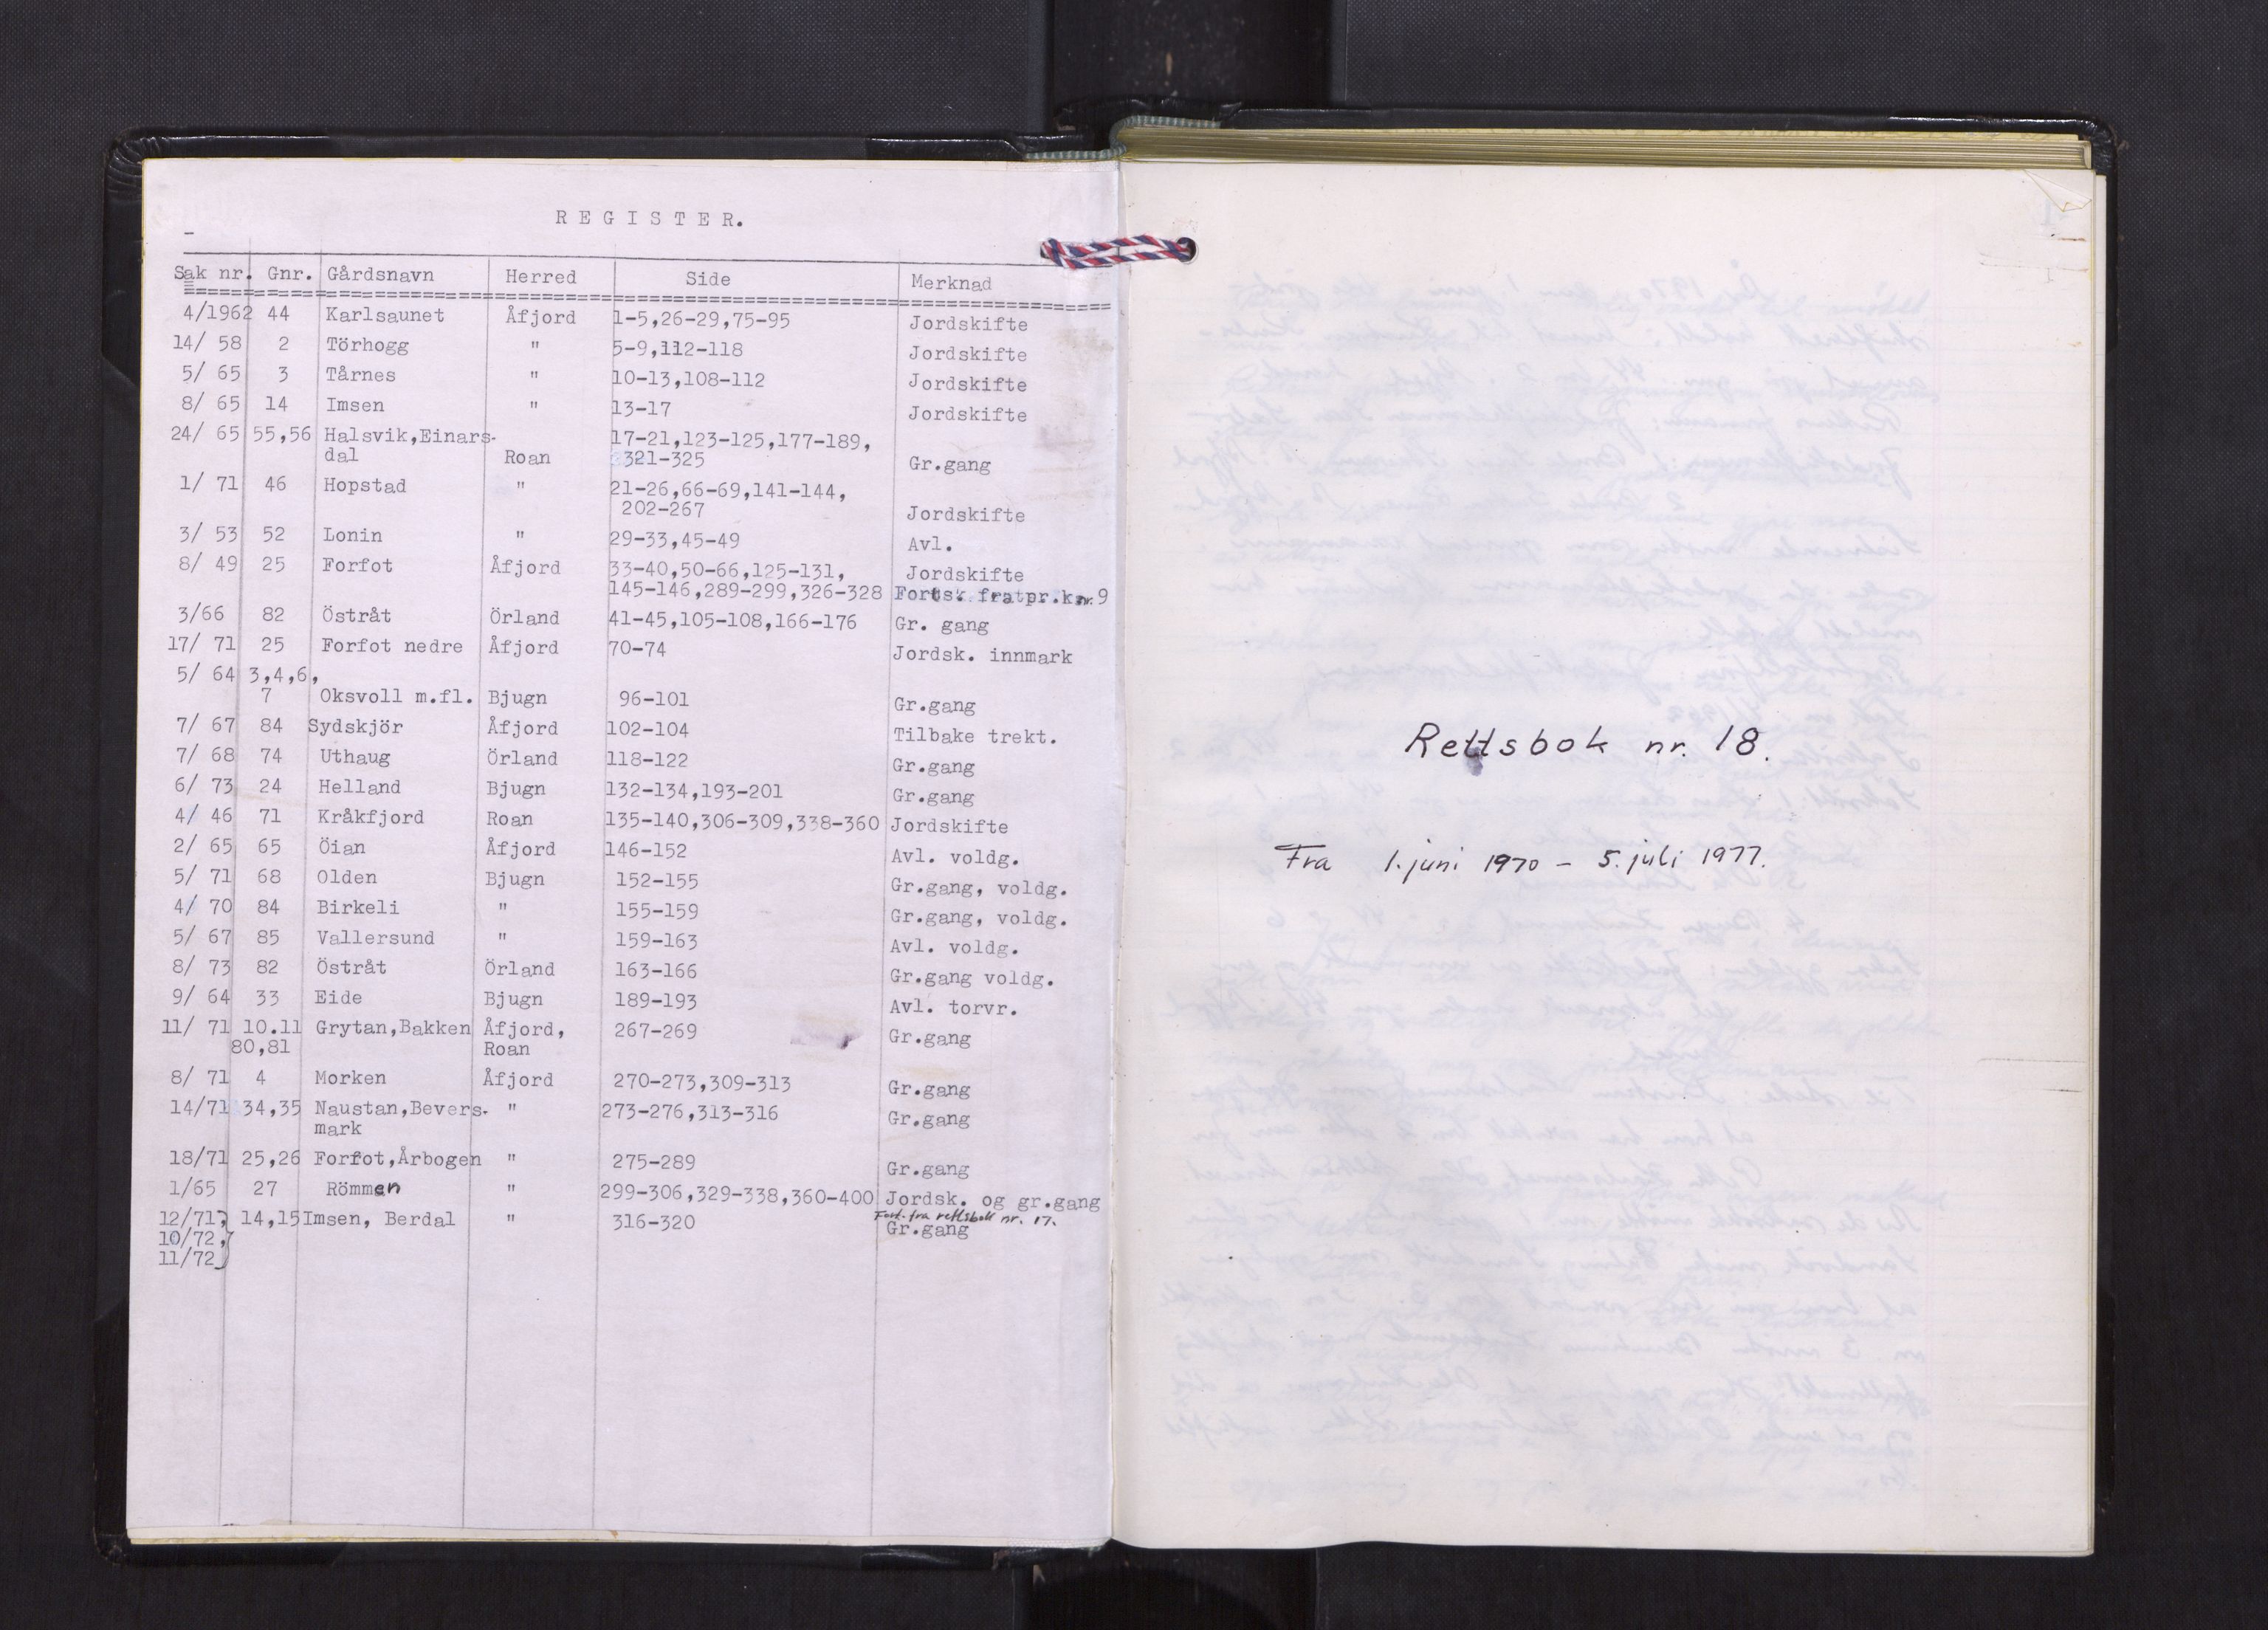 REGISTER.
Sak nr. Gnr. Gårdsnavn Herred Side Merknad
4/1962 44 Karlsaunet Åfjord 1-5,26-29,75-95 Jordskifte
14/ 58 2 Törhogg " 5-9,112-118 Jordskifte
5/ 65 3 Tårnes " 10-13,108-112 Jordskifte
8/ 65 14 Imsen " 13-17 Jordskifte
24/ 65 55,56 Halsvik,Einars- 17-21,123-125,177-189,
dal Roan 321-325 Gr.gang
1/ 71 46 Hopstad " 21-26,66-69,141-144,
202-267 Jordskifte
3/ 53 52 Lonin " 29-33,45-49 Avl.
8/ 49 25 Forfot Åfjord 33-40,50-66,125-131, Jordskifte
145-146,289-299,326-328 nr. 9
3/66 82 Östråt Örland 41-45,105-108,166-176 Gr. gang
17/ 71 25 Forfot nedre Åfjord 70-74 Jordsk. innmark
5/ 64 3,4,6,
7 Oksvoll m.fl. Bjugn 96-101 Gr.gang
7/ 67 84 Sydskjör Åfjord 102-104 Tilbake trekt.
7/ 68 74 Uthaug Örland 118-122 Gr.gang
6/ 73 24 Helland Bjugn 132-134,193-201 Gr.gang
4/ 46 71 Kråkfjord Roan 135-140,306-309,338-360 Jordskifte
2/ 65 65 Öian Åfjord 146-152 Avl. voldg.
5/ 71 68 Olden Bjugn 152-155 Gr.gang, voldg.
4/ 70 84 Birkeli " 155-159 Gr.gang, voldg.
5/ 67 85 Vallersund " 159-163 Avl. voldg.
8/ 73 82 Östråt Örland 163-166 Gr.gang voldg.
9/ 64 33 Eide Bjugn 189-193 Avl. torvr.
11/ 71 10.11 Grytan,Bakken Åfjord, 267-269 Gr.gang
80,81 Roan
8/ 71 4 Morken Åfjord 270-273,309-313 Gr.gang
14/71 34,35 Naustan,Bevers- " 273-276,313-316 Gr.gang
mark
18/71 25,26 Forfot,Årbogen " 275-289 Gr.gang
1/65 27 Römmen " 299-306,329-338,360-400 Jordsk. og gr.gang
Fort. fra rettsbok nr. 17.
12/71, 14,15 Imsen, Berdal " 316-320 Gr.gang
10/72,
11/72
Rettsbok nr. 18.
Fra 1. juni 1970 - 5. juli 1977.